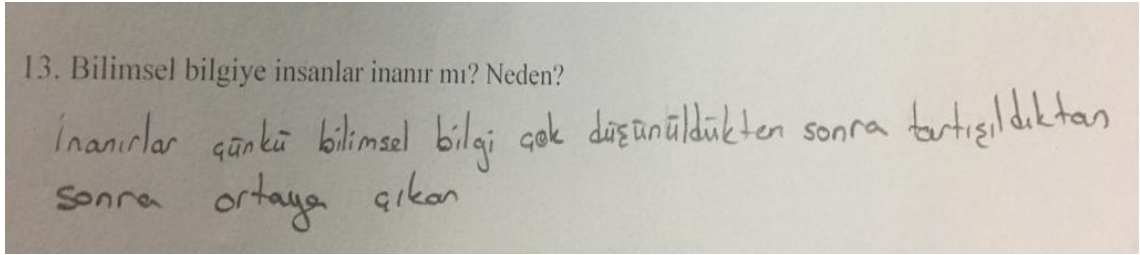 13. Bilimsel bilgiye insanlar inanır mı? Neden?
İnanırlar çünkü bilimsel bilgi çok düşünüldükten sonra tartışıldıktan
sonra ortaya çıkan